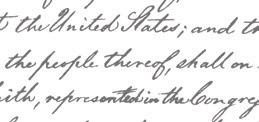 the United States; and th
the people thereof, shall on
ith, represented in the Congre